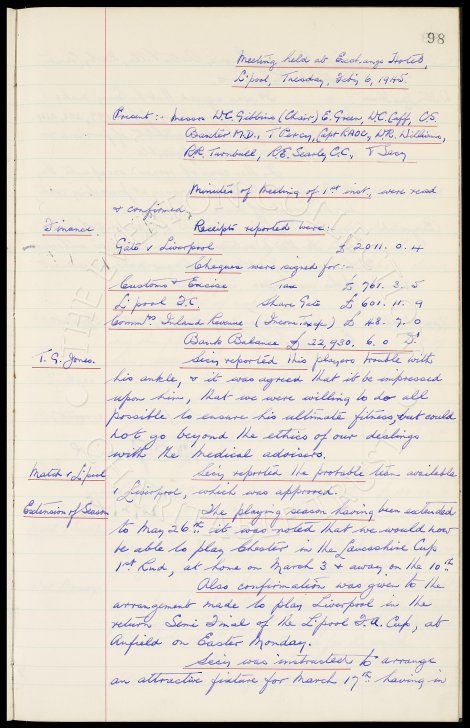 98
Meeting held at Exchange Hotel,
L'pool, Tuesday, Feb'y 6, 1945.
Present :- Messrs W.C. Gibbins (Chair) E. Green, W.C. Cuff, C.S.
Baxter M.D., T. Percy, Capt RAOC, W.R. Williams,
R.R. Turnbull, R.E. Searle, C.C., & Secy
Minutes of Meeting of 1st inst, were read
& confirmed.
Finance. Receipts reported were :-
Gate v Liverpool £ 2011. 0. 4
Cheques were signed for :-
Customs & Excise Tax £ 761. 3. 5
L'pool F.C. Share Gate £ 601. 11. 9
Commrs Inland Revenue (Income Tax) £ 48. 7. 0
Bank Balance £ 22,930. 6. 0
T.G. Jones. Secy reported this players trouble with
his ankle, & it was agreed that it be impressed
upon him, that we were willing to do all
possible to ensure his ultimate fitness, but could
not go beyond the ethics of our dealings
with the medical advisers.
Match v L'pool Secy reported the probable team available
v Liverpool, which was approved.
Extension of Season The playing season having been extended
to May 26th it was noted that we would now
be able to play Chester in the Lancashire Cup
1st Rnd, at home on March 3 & away on the 10th
Also confirmation was given to the
arrangement made to play Liverpool in the
return Semi Final of the L'pool F.A. Cup, at
Anfield on Easter Monday.
Secy was instructed to arrange
an attractive fixture for March 17th having in